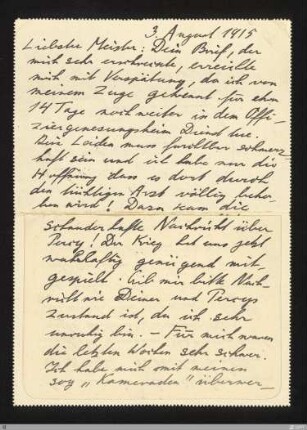 3. August 1915
Liebster Meister: Dein Brief, der
mich sehr erschreckte, erreichte
mich mit Verspätung, da ich von
meinem Zuge getrennt für etwa
14 Tage noch weiter in dem Offi-
ziergenesungsheim Dienst tue.
Dein Leiden muss furchtbar schmerz
haft sein und ich habe nur die
Hoffnung dass es dort durch
den tüchtigen Arzt völlig behо-
ben wird! Dazu kam die
schauderhafte Nachricht über
Percy! Der Krieg hat uns jetzt
wahrhaftig genügend mit-
gespielt. Gib mir bitte Nach-
richt wie Deiner und Percys
Zustand ist, da ich sehr
unruhig bin. – Für mich waren
die letzten Wochen sehr schwer.
Ich habe mich mit meinen
sog „Kameraden" überwer_